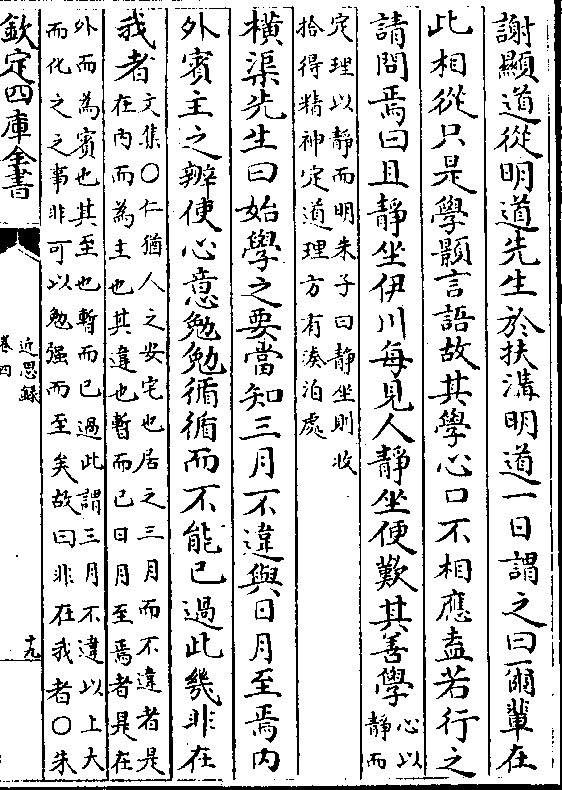 謝顯道從明道先生於扶溝明道一日謂之曰爾輩在
此相從只是學顥言語故其學心口不相應盍若行之
請問焉曰且靜坐伊川每見人靜坐便歎其善學
心以
靜而
定理以靜而明朱子曰靜坐則收
拾得精神定道理方有湊泊處
橫渠先生曰始學之要當知三月不違與日月至焉內
外賓主之辨使心意勉勉循循而不能已過此幾非在
我者
文集○仁猶人之安宅也居之三月而不違者是
在內而為主也其違也暫而已日月至焉者是在
外而為賓也其至也暫而已過此謂三月不違以上大
而化之之事非可以勉强而至矣故曰非在我者○朱
欽定四庫全書
近思錄
卷四
十九